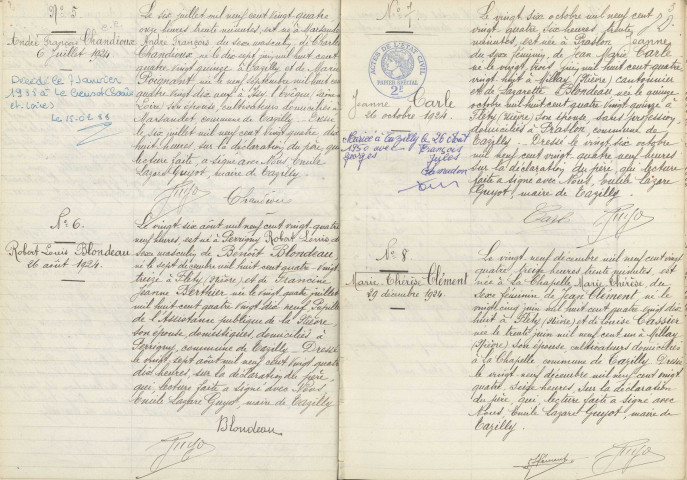 N° 5
André François Chandioux
6 Juillet 1924
Décédé le 1 Janvier
1988 à Le Creusot (Saône
et Loire)
Le 15.02.88
Le six juillet mil neuf cent vingt quatre
onze heures trente minutes, est né à Marsandet
André François du sexe masculin, de Charles
Chandioux né le sept juin mil huit cent
quatre vingt quinze à Cazilly et de Marie
née le neuf septembre mil huit cent
quatre vingt dix neuf à Issy l'Evêque (Saône et
Loire) son épouse, cultivateurs domiciliés à
Marsandet, commune de Cazilly. Dressé
le six juillet mil neuf cent vingt quatre, dix
huit heures sur la déclaration du père, qui,
lecture faite, a signé avec Nous, Emile
Lazare Guyot, maire de Cazilly.
Guyot
Chandioux
N° 6.
Robert Louis Blondeau
26 août 1924.
Le vingt six août mil neuf cent vingt quatre
neuf heures, est né à Perrigny Robert Louis du
sexe masculin de Benoit Blondeau
né le sept décembre mil huit cent quatre vingt
treize à Fléty (Nièvre) et de Francine
Jeanne Berthier née le vingt quatre juillet
mil huit cent quatre vingt dix neuf Pupille
de l'Assistance publique de la Nièvre
son épouse, domestiques, domiciliés à
Perrigny, commune de Cazilly. Dressé
le vingt sept août mil neuf cent vingt quatre
dix heures, sur la déclaration du père,
qui, lecture faite a signé avec Nous
Emile Lazare Guyot, maire de Cazilly
Blondeau
Guyot
N° 7
ACTES DE L'ETAT CIVIL
PAPIER SPECIAL
2F
Jeanne Carle
26 octobre 1924.
Mariée à Cazilly le 26 Août
1950 avec François
Georges Jules
Le vingt six octobre mil neuf cent
vingt quatre six heures trente
minutes, est née à Fraston Jeanne
du sexe féminin, de Jean Marie Carle
né le vingt trois juin mil huit cent quatre
vingt huit à Millay (Nièvre) cantonnier
et de Lazarette Blondeau née le quinze
octobre mil huit cent quatre vingt quinze à
Fléty (Nièvre) son épouse sans profession,
domiciliés à Fraston, commune de
Cazilly. Dressé le vingt six octobre
mil neuf cent vingt quatre, neuf heures
sur la déclaration du père, qui, lecture
faite a signé avec Nous, Emile Lazare
Guyot, maire de Cazilly.
Carle
Guyot
N° 8
Marie Thérèse Clément
29 décembre 1924.
Le vingt neuf décembre mil neuf cent vingt
quatre treize heures trente minutes, est
née à La Chapelle Marie Thérèse du
sexe féminin de Jean Clément, né le
vingt cinq juin mil huit cent quatre vingt dix
huit à Fléty (Nièvre) et de Louise Cassier
née le trente juin mil neuf cent un à Millay
(Nièvre) son épouse, cultivateurs domiciliés
à La Chapelle commune de Cazilly. Dressé
le vingt neuf décembre mil neuf cent vingt
quatre, seize heures, sur la déclaration
du père, qui, lecture faite a signé avec
Nous, Emile Lazare Guyot, maire de
Cazilly.
Clément
Guyot